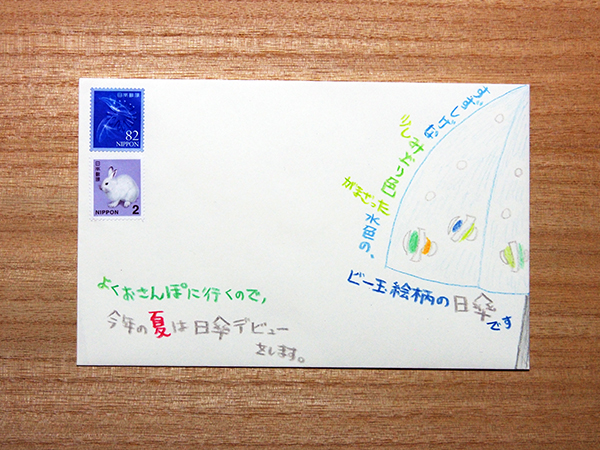 日本郵便
82
NIPPON
日本郵便
NIPPON 2
すずしげな
少しみどり色
がまざった
水色の、
ビー玉絵柄の日傘です
よくおさんぽに行くので、
今年の夏は日傘デビュー
をします。